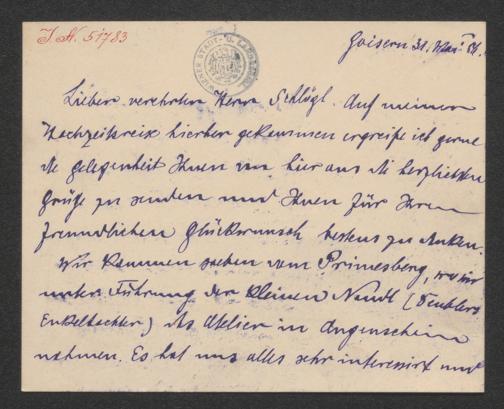 J. N. 51783
Goisern 31. Mai
Lieber verehrter Herr Schlögl. Auf meiner
Hochzeitsreise hierher gekommen ergreife ich gerne
die gelegenheit Ihnen von hier aus die herzlichsten
Grüße zu senden und Ihnen für Ihren
freundlichen Glückwunsch bestens zu danken.
Wir kommen soeben vom Primesberg, wo wir
unter Führung der kleinen Nandl (Deublers
Enkeltochter) das Atelier in Augenschein
nahmen. Es hat uns alles sehr interessirt und